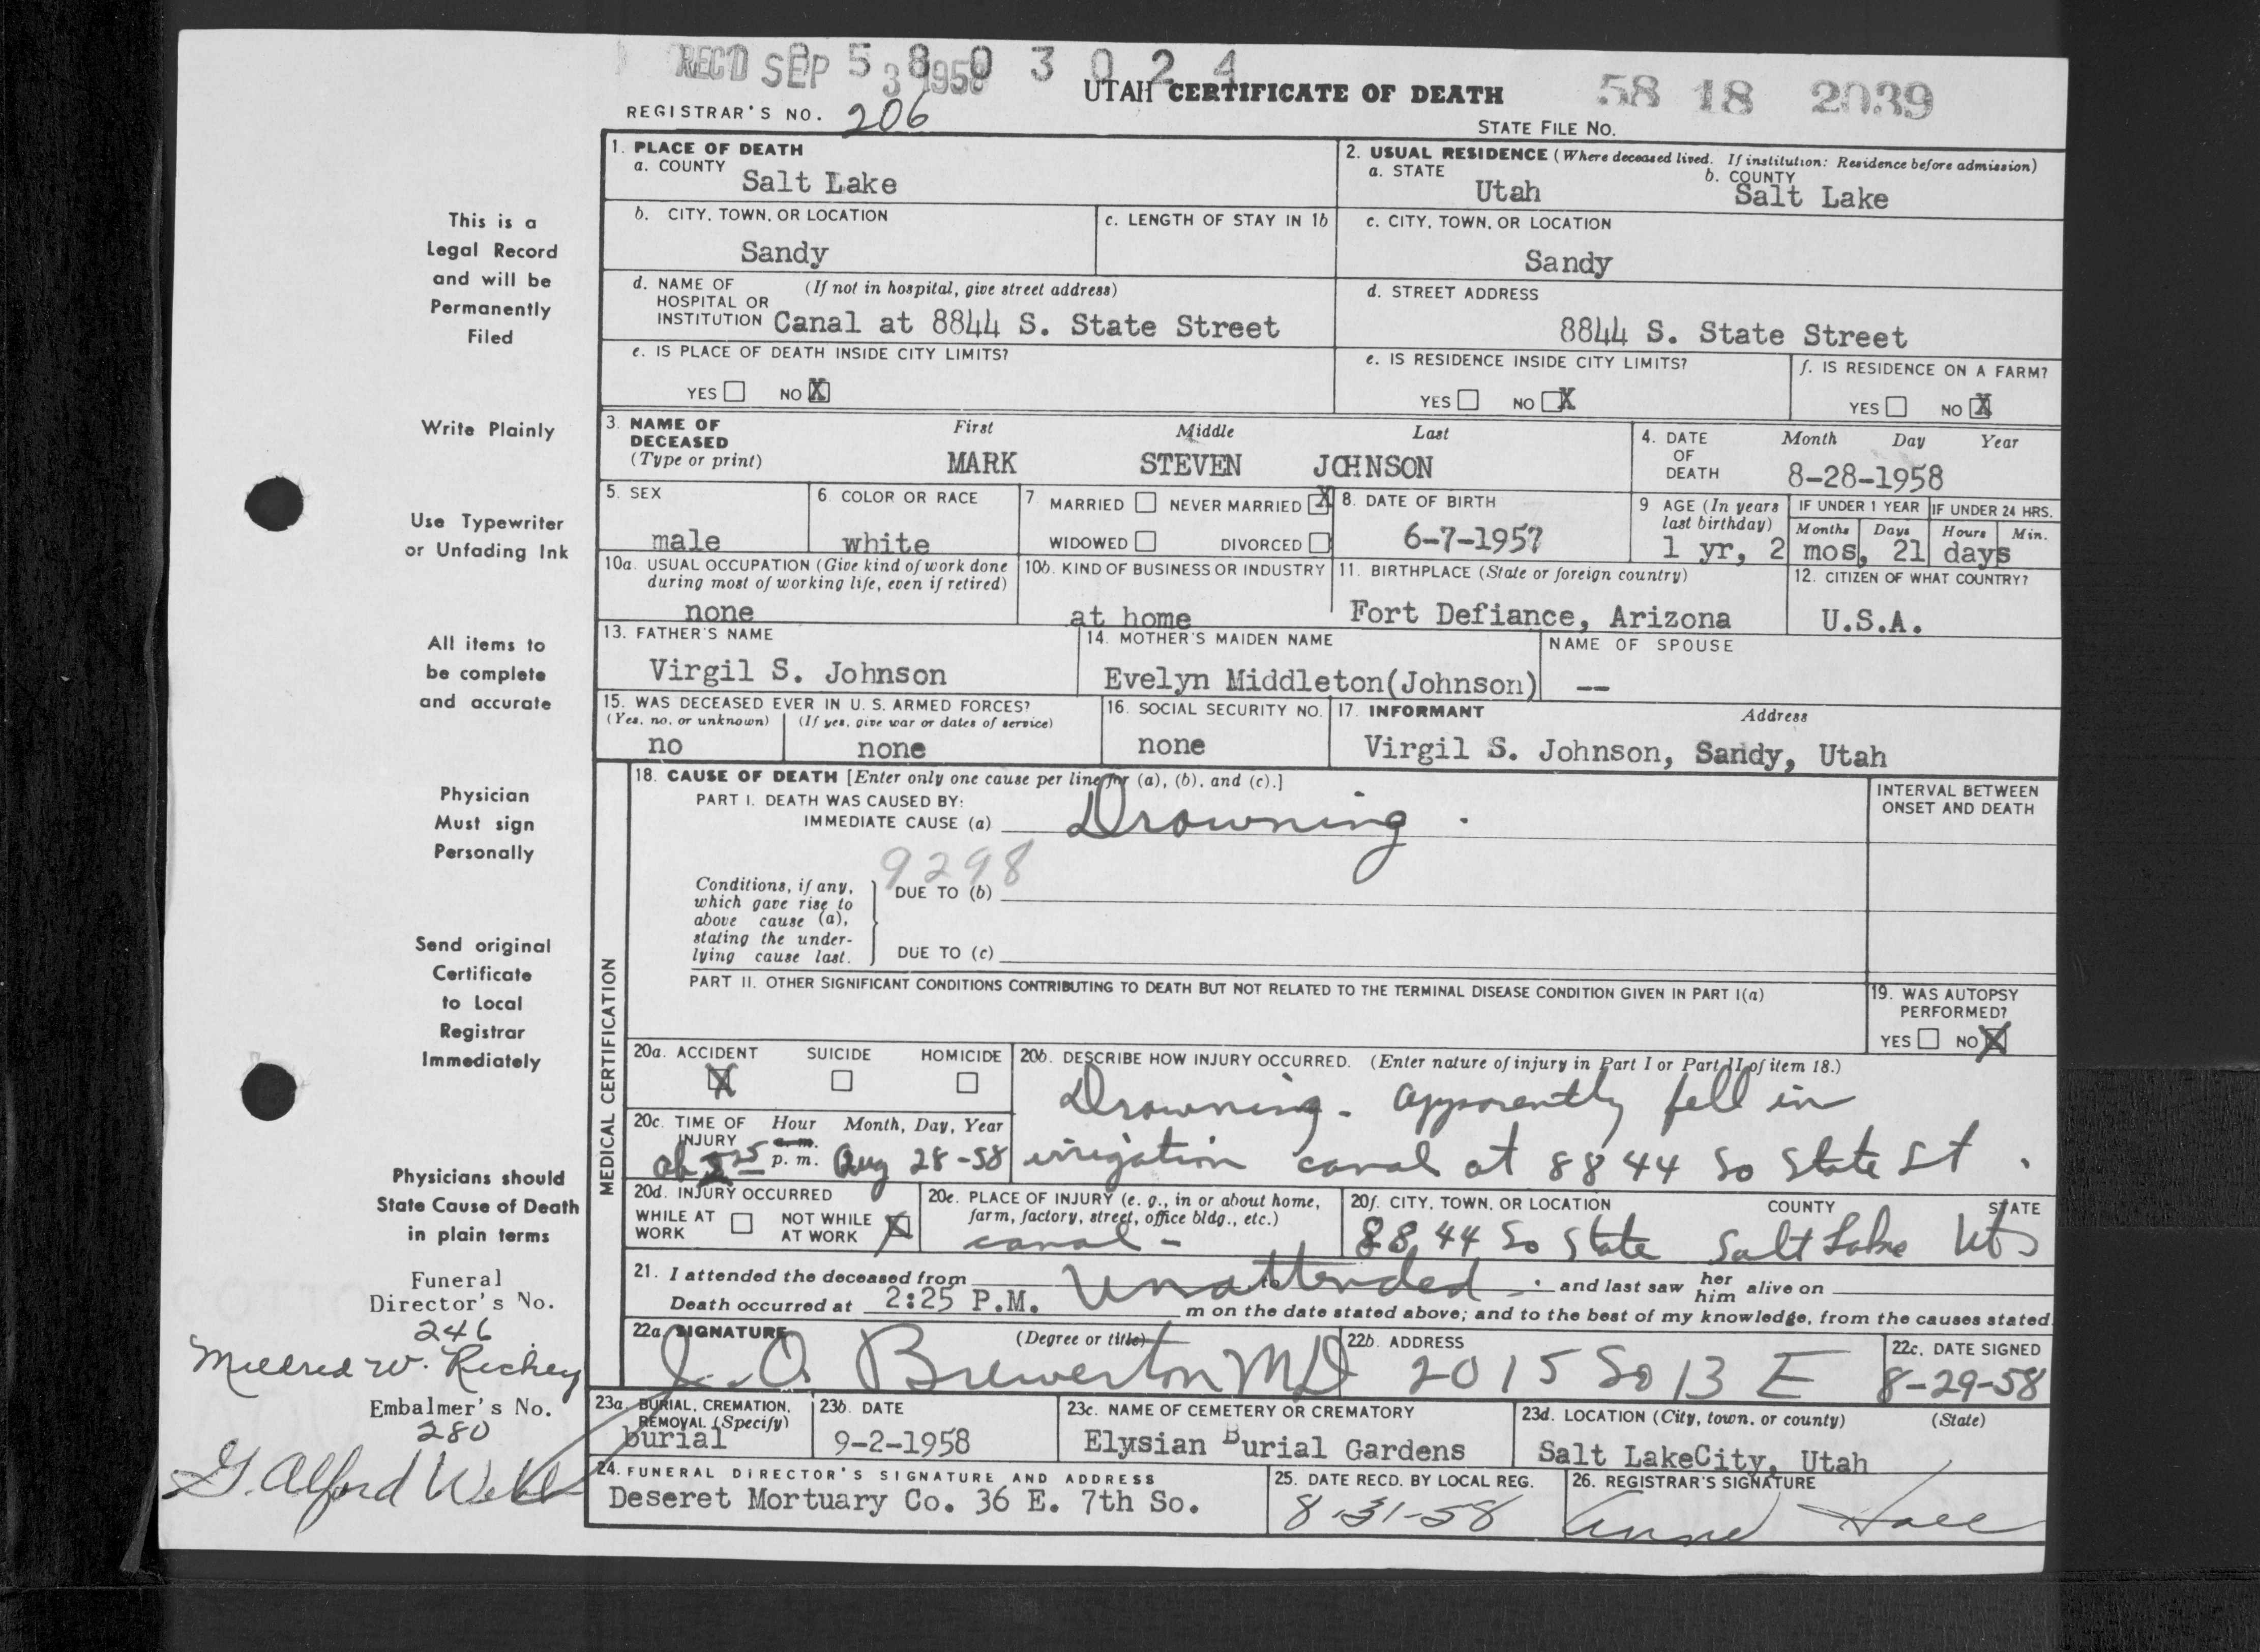 REC'D SEP 3 1958
5 8 0 3 0 2 4
UTAH CERTIFICATE OF DEATH
58 18 2039
REGISTRAR'S NO. 206
STATE FILE NO.
1. PLACE OF DEATH
a. COUNTY
Salt Lake
2. USUAL RESIDENCE (Where deceased lived. If institution: Residence before admission)
a. STATE
Utah
b. COUNTY
Salt Lake
b. CITY, TOWN, OR LOCATION
Sandy
c. LENGTH OF STAY IN 1b
c. CITY, TOWN, OR LOCATION
Sandy
d. NAME OF HOSPITAL OR INSTITUTION (If not in hospital, give street address)
Canal at 8844 S. State Street
d. STREET ADDRESS
8844 S. State Street
e. IS PLACE OF DEATH INSIDE CITY LIMITS?
YES NO X
e. IS RESIDENCE INSIDE CITY LIMITS?
YES NO X
f. IS RESIDENCE ON A FARM?
YES NO X
3. NAME OF DECEASED (Type or print)
First Middle Last
MARK STEVEN JOHNSON
4. DATE OF DEATH
Month Day Year
8-28-1958
5. SEX
male
6 COLOR OR RACE
white
7 MARRIED NEVER MARRIED X
WIDOWED DIVORCED
8. DATE OF BIRTH
6-7-1957
9 AGE (In years last birthday)
IF UNDER 1 YEAR IF UNDER 24 HRS.
Months Days Hours Min.
1 yr, 2 mos, 21 days
10a. USUAL OCCUPATION (Give kind of work done during most of working life, even if retired)
none
10b. KIND OF BUSINESS OR INDUSTRY
at home
11. BIRTHPLACE (State or foreign country)
Fort Defiance, Arizona
12. CITIZEN OF WHAT COUNTRY?
U.S.A.
13. FATHER'S NAME
Virgil S. Johnson
14. MOTHER'S MAIDEN NAME
Evelyn Middleton(Johnson)
NAME OF SPOUSE
--
15. WAS DECEASED EVER IN U. S. ARMED FORCES?
(Yes, no, or unknown) (If yes, give war or dates of service)
no none
16. SOCIAL SECURITY NO.
none
17. INFORMANT Address
Virgil S. Johnson, Sandy, Utah
MEDICAL CERTIFICATION
18. CAUSE OF DEATH [Enter only one cause per line for (a), (b), and (c).]
PART I. DEATH WAS CAUSED BY:
IMMEDIATE CAUSE (a) Drowning.
INTERVAL BETWEEN ONSET AND DEATH
9298
Conditions, if any, which gave rise to above cause (a), stating the underlying cause last.
DUE TO (b)
DUE TO (c)
PART II. OTHER SIGNIFICANT CONDITIONS CONTRIBUTING TO DEATH BUT NOT RELATED TO THE TERMINAL DISEASE CONDITION GIVEN IN PART I(a)
19. WAS AUTOPSY PERFORMED?
YES NO X
20a. ACCIDENT SUICIDE HOMICIDE
X
20b. DESCRIBE HOW INJURY OCCURRED. (Enter nature of injury in Part I or Part II of item 18.)
Drowning - apparently fell in
irrigation canal at 8844 So State St.
20c. TIME OF INJURY Hour Month, Day, Year
a. m.
p. m. Aug 28-58
20d. INJURY OCCURRED
WHILE AT WORK NOT WHILE AT WORK X
20e. PLACE OF INJURY (e. g., in or about home, farm, factory, street, office bldg., etc.)
canal -
20f. CITY, TOWN, OR LOCATION COUNTY STATE
8844 So State Salt Lake Ut
21. I attended the deceased from Unattended to and last saw her him alive on
Death occurred at 2:25 P.M. m on the date stated above; and to the best of my knowledge, from the causes stated.
22a. SIGNATURE (Degree or title)
J. O. Brewerton MD
22b. ADDRESS
2015 So 13 E
22c. DATE SIGNED
8-29-58
23a. BURIAL, CREMATION, REMOVAL (Specify)
burial
23b. DATE
9-2-1958
23c. NAME OF CEMETERY OR CREMATORY
Elysian Burial Gardens
23d. LOCATION (City, town, or county) (State)
Salt LakeCity, Utah
24. FUNERAL DIRECTOR'S SIGNATURE AND ADDRESS
Deseret Mortuary Co. 36 E. 7th So.
25. DATE RECD. BY LOCAL REG.
8-31-58
26. REGISTRAR'S SIGNATURE
This is a
Legal Record
and will be
Permanently
Filed
Write Plainly
Use Typewriter
or Unfading Ink
All items to
be complete
and accurate
Physician
Must sign
Personally
Send original
Certificate
to Local
Registrar
Immediately
Physicians should
State Cause of Death
in plain terms
Funeral
Director's No.
246
Mildred W. Richey
Embalmer's No.
280
G. Alford Webb